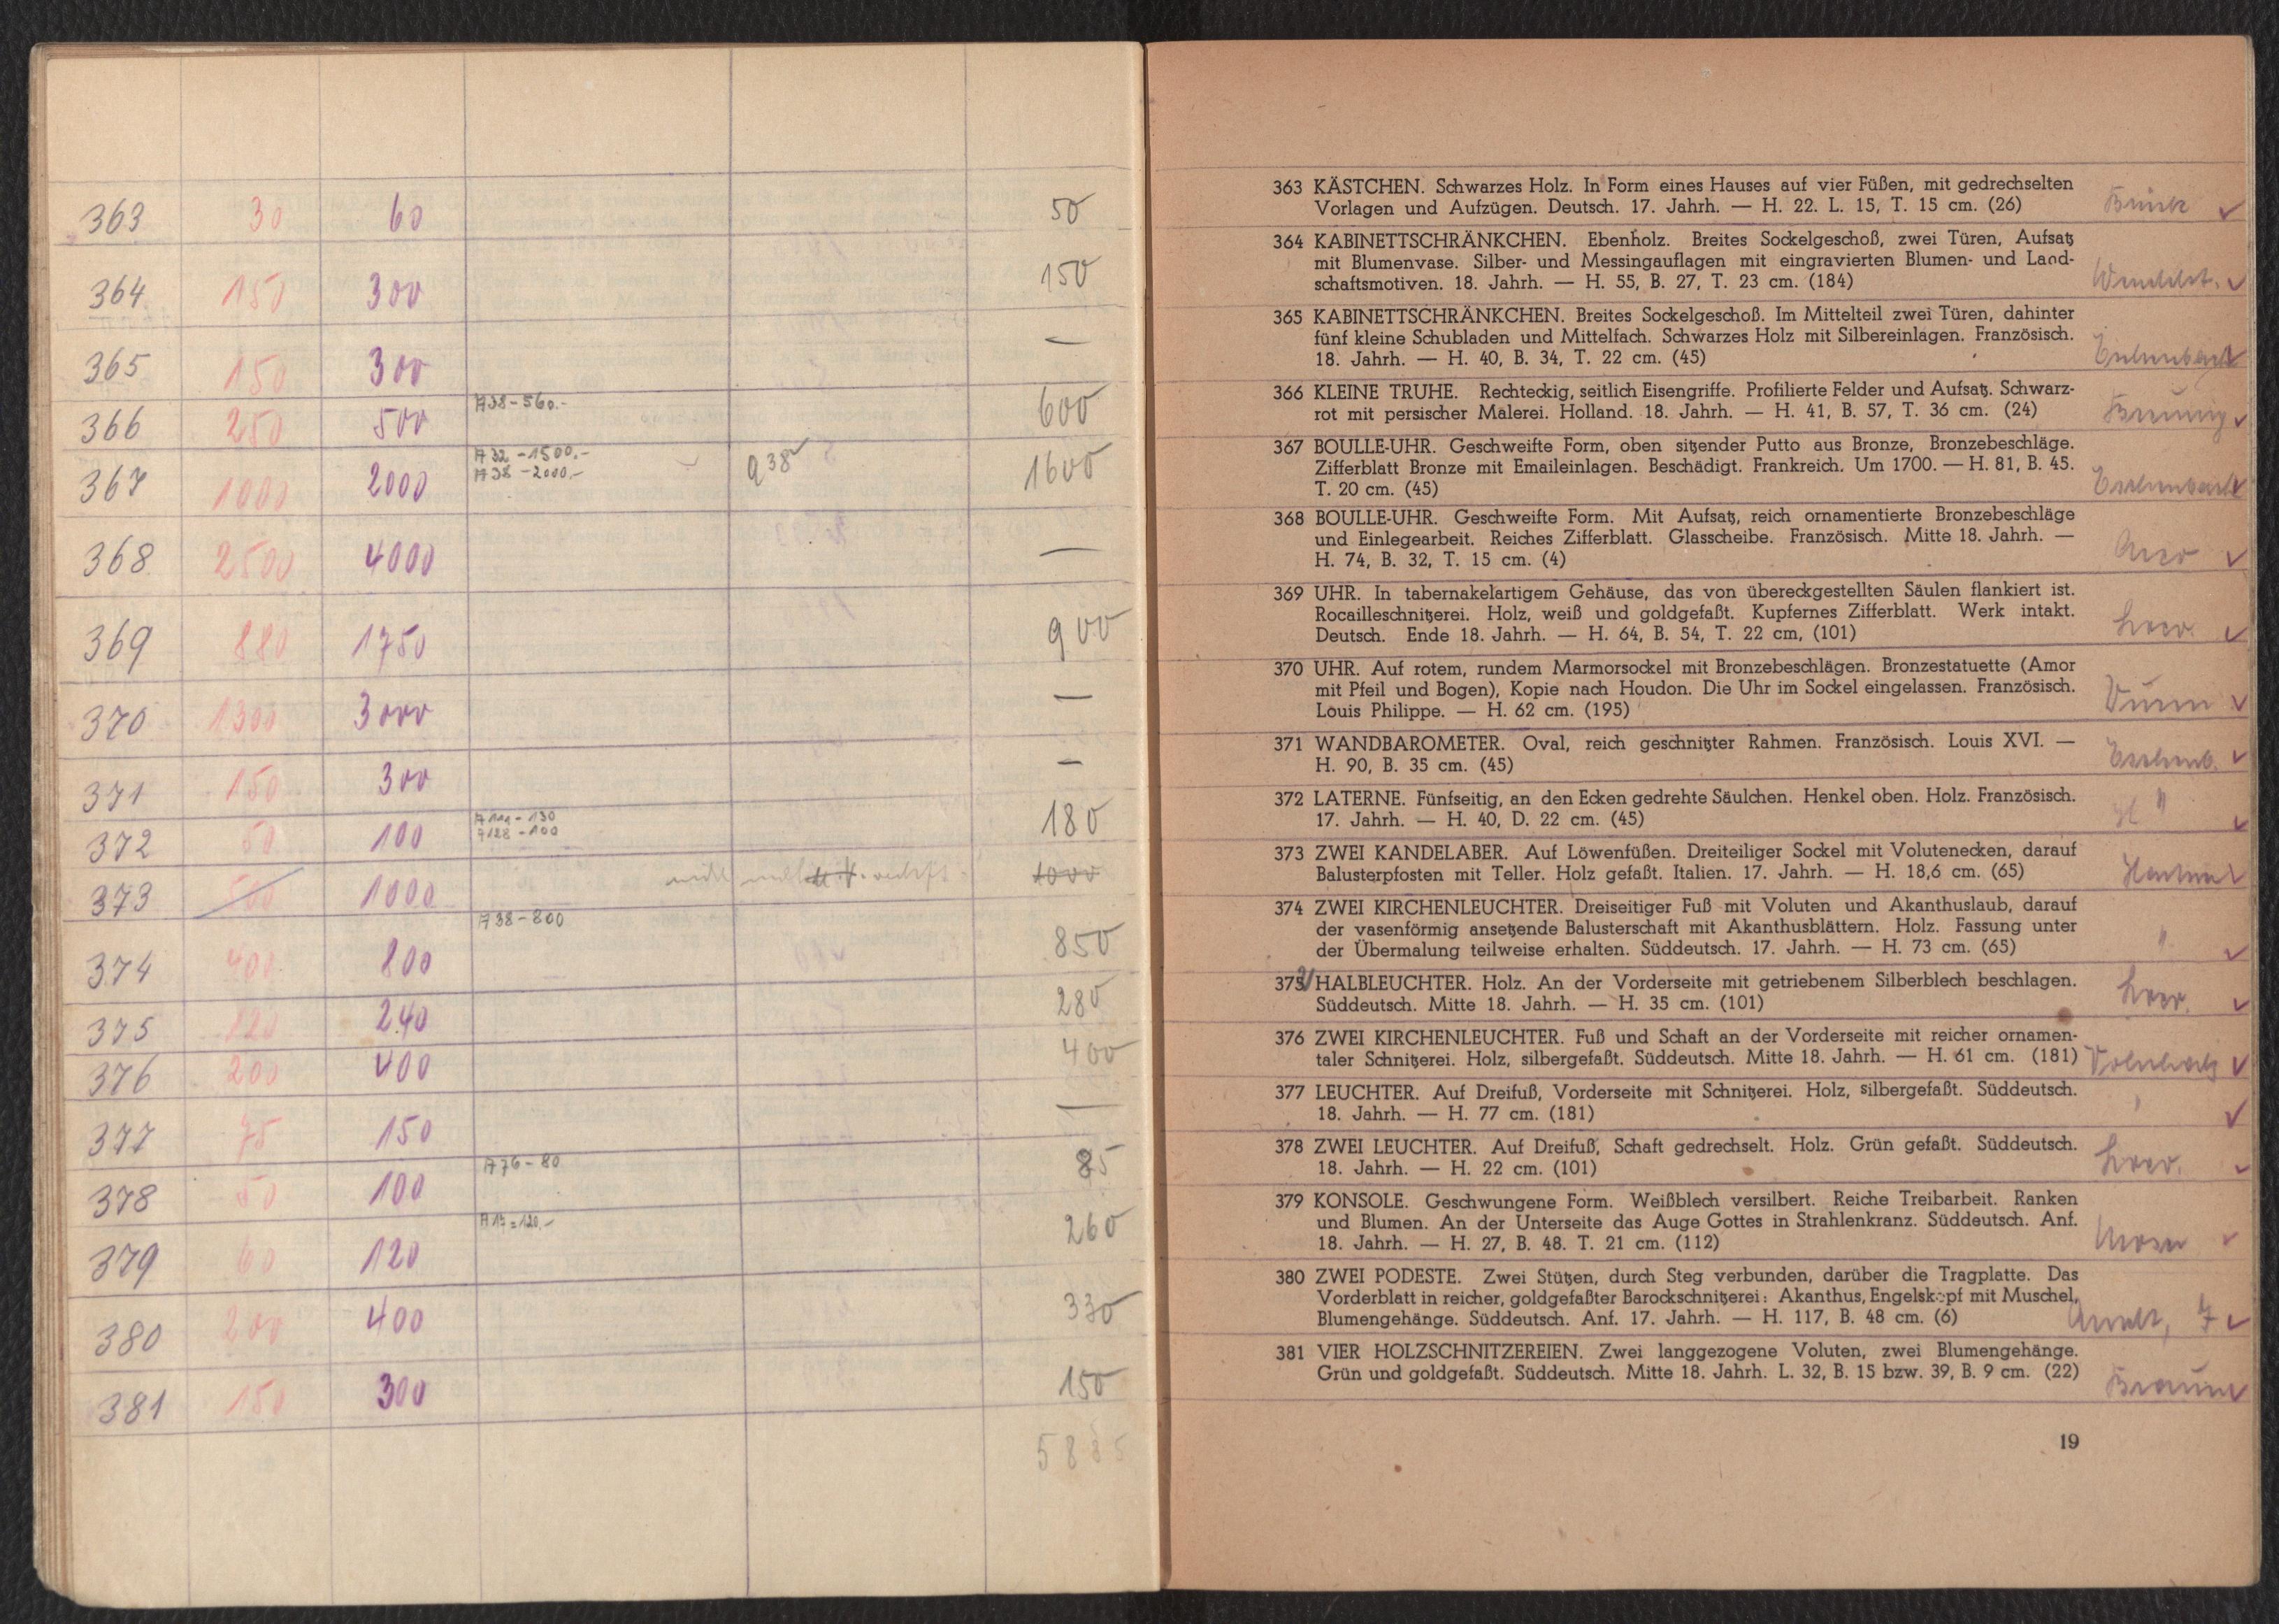 363 30 60 50
364 150 300 150
365 150 300 —
366 250 500 A38-560.- 600
367 1000 2000 A32-1500.- A38-2000.- a38 1600
368 2500 4000 —
369 880 1750 900
370 1300 3000 —
371 150 300 —
372 50 100 A128-100 180
373 500 1000 1000
374 400 800 A38-800 850
375 120 240 280
376 200 400 400
377 75 150 —
378 50 100 A76-80 85
379 60 120 260
380 200 400 330
381 150 300 150
5885
363 KÄSTCHEN. Schwarzes Holz. In Form eines Hauses auf vier Füßen, mit gedrechselten
Vorlagen und Aufzügen. Deutsch. 17. Jahrh. — H. 22. L. 15, T. 15 cm. (26)
364 KABINETTSCHRÄNKCHEN. Ebenholz. Breites Sockelgeschoß, zwei Türen, Aufsatz
mit Blumenvase. Silber- und Messingauflagen mit eingravierten Blumen- und Land-
schaftsmotiven. 18. Jahrh. — H. 55, B. 27, T. 23 cm. (184)
365 KABINETTSCHRÄNKCHEN. Breites Sockelgeschoß. Im Mittelteil zwei Türen, dahinter
fünf kleine Schubladen und Mittelfach. Schwarzes Holz mit Silbereinlagen. Französisch.
18. Jahrh. — H. 40, B. 34, T. 22 cm. (45) Eschenbach
366 KLEINE TRUHE. Rechteckig, seitlich Eisengriffe. Profilierte Felder und Aufsatz. Schwarz-
rot mit persischer Malerei. Holland. 18. Jahrh. — H. 41, B. 57, T. 36 cm. (24)
367 BOULLE-UHR. Geschweifte Form, oben sitzender Putto aus Bronze, Bronzebeschläge.
Zifferblatt Bronze mit Emaileinlagen. Beschädigt. Frankreich. Um 1700. — H. 81, B. 45.
T. 20 cm. (45) Eschenbach
368 BOULLE-UHR. Geschweifte Form. Mit Aufsatz, reich ornamentierte Bronzebeschläge
und Einlegearbeit. Reiches Zifferblatt. Glasscheibe. Französisch. Mitte 18. Jahrh. —
H. 74, B. 32, T. 15 cm. (4) Arco
369 UHR. In tabernakelartigem Gehäuse, das von übereckgestellten Säulen flankiert ist.
Rocailleschnitzerei. Holz, weiß und goldgefaßt. Kupfernes Zifferblatt. Werk intakt.
Deutsch. Ende 18. Jahrh. — H. 64, B. 54, T. 22 cm, (101)
370 UHR. Auf rotem, rundem Marmorsockel mit Bronzebeschlägen. Bronzestatuette (Amor
mit Pfeil und Bogen), Kopie nach Houdon. Die Uhr im Sockel eingelassen. Französisch.
Louis Philippe. — H. 62 cm. (195)
371 WANDBAROMETER. Oval, reich geschnitzter Rahmen. Französisch. Louis XVI. —
H. 90, B. 35 cm. (45) Eschenb.
372 LATERNE. Fünfseitig, an den Ecken gedrehte Säulchen. Henkel oben. Holz. Französisch.
17. Jahrh. — H. 40, D. 22 cm. (45) "
373 ZWEI KANDELABER. Auf Löwenfüßen. Dreiteiliger Sockel mit Volutenecken, darauf
Balusterpfosten mit Teller. Holz gefaßt. Italien. 17. Jahrh. — H. 18,6 cm. (65)
374 ZWEI KIRCHENLEUCHTER. Dreiseitiger Fuß mit Voluten und Akanthuslaub, darauf
der vasenförmig ansetzende Balusterschaft mit Akanthusblättern. Holz. Fassung unter
der Übermalung teilweise erhalten. Süddeutsch. 17. Jahrh. — H. 73 cm. (65) "
375 2/ HALBLEUCHTER. Holz. An der Vorderseite mit getriebenem Silberblech beschlagen.
Süddeutsch. Mitte 18. Jahrh. — H. 35 cm. (101)
376 ZWEI KIRCHENLEUCHTER. Fuß und Schaft an der Vorderseite mit reicher ornamen-
taler Schnitzerei. Holz, silbergefaßt. Süddeutsch. Mitte 18. Jahrh. — H. 61 cm. (181)
377 LEUCHTER. Auf Dreifuß, Vorderseite mit Schnitzerei. Holz, silbergefaßt. Süddeutsch.
18. Jahrh. — H. 77 cm. (181)
378 ZWEI LEUCHTER. Auf Dreifuß, Schaft gedrechselt. Holz. Grün gefaßt. Süddeutsch.
18. Jahrh. — H. 22 cm. (101)
379 KONSOLE. Geschwungene Form. Weißblech versilbert. Reiche Treibarbeit. Ranken
und Blumen. An der Unterseite das Auge Gottes in Strahlenkranz. Süddeutsch. Anf.
18. Jahrh. — H. 27, B. 48. T. 21 cm. (112)
380 ZWEI PODESTE. Zwei Stützen, durch Steg verbunden, darüber die Tragplatte. Das
Vorderblatt in reicher, goldgefaßter Barockschnitzerei: Akanthus, Engelskopf mit Muschel,
Blumengehänge. Süddeutsch. Anf. 17. Jahrh. — H. 117, B. 48 cm. (6)
381 VIER HOLZSCHNITZEREIEN. Zwei langgezogene Voluten, zwei Blumengehänge.
Grün und goldgefaßt. Süddeutsch. Mitte 18. Jahrh. L. 32, B. 15 bzw. 39, B. 9 cm. (22)
19